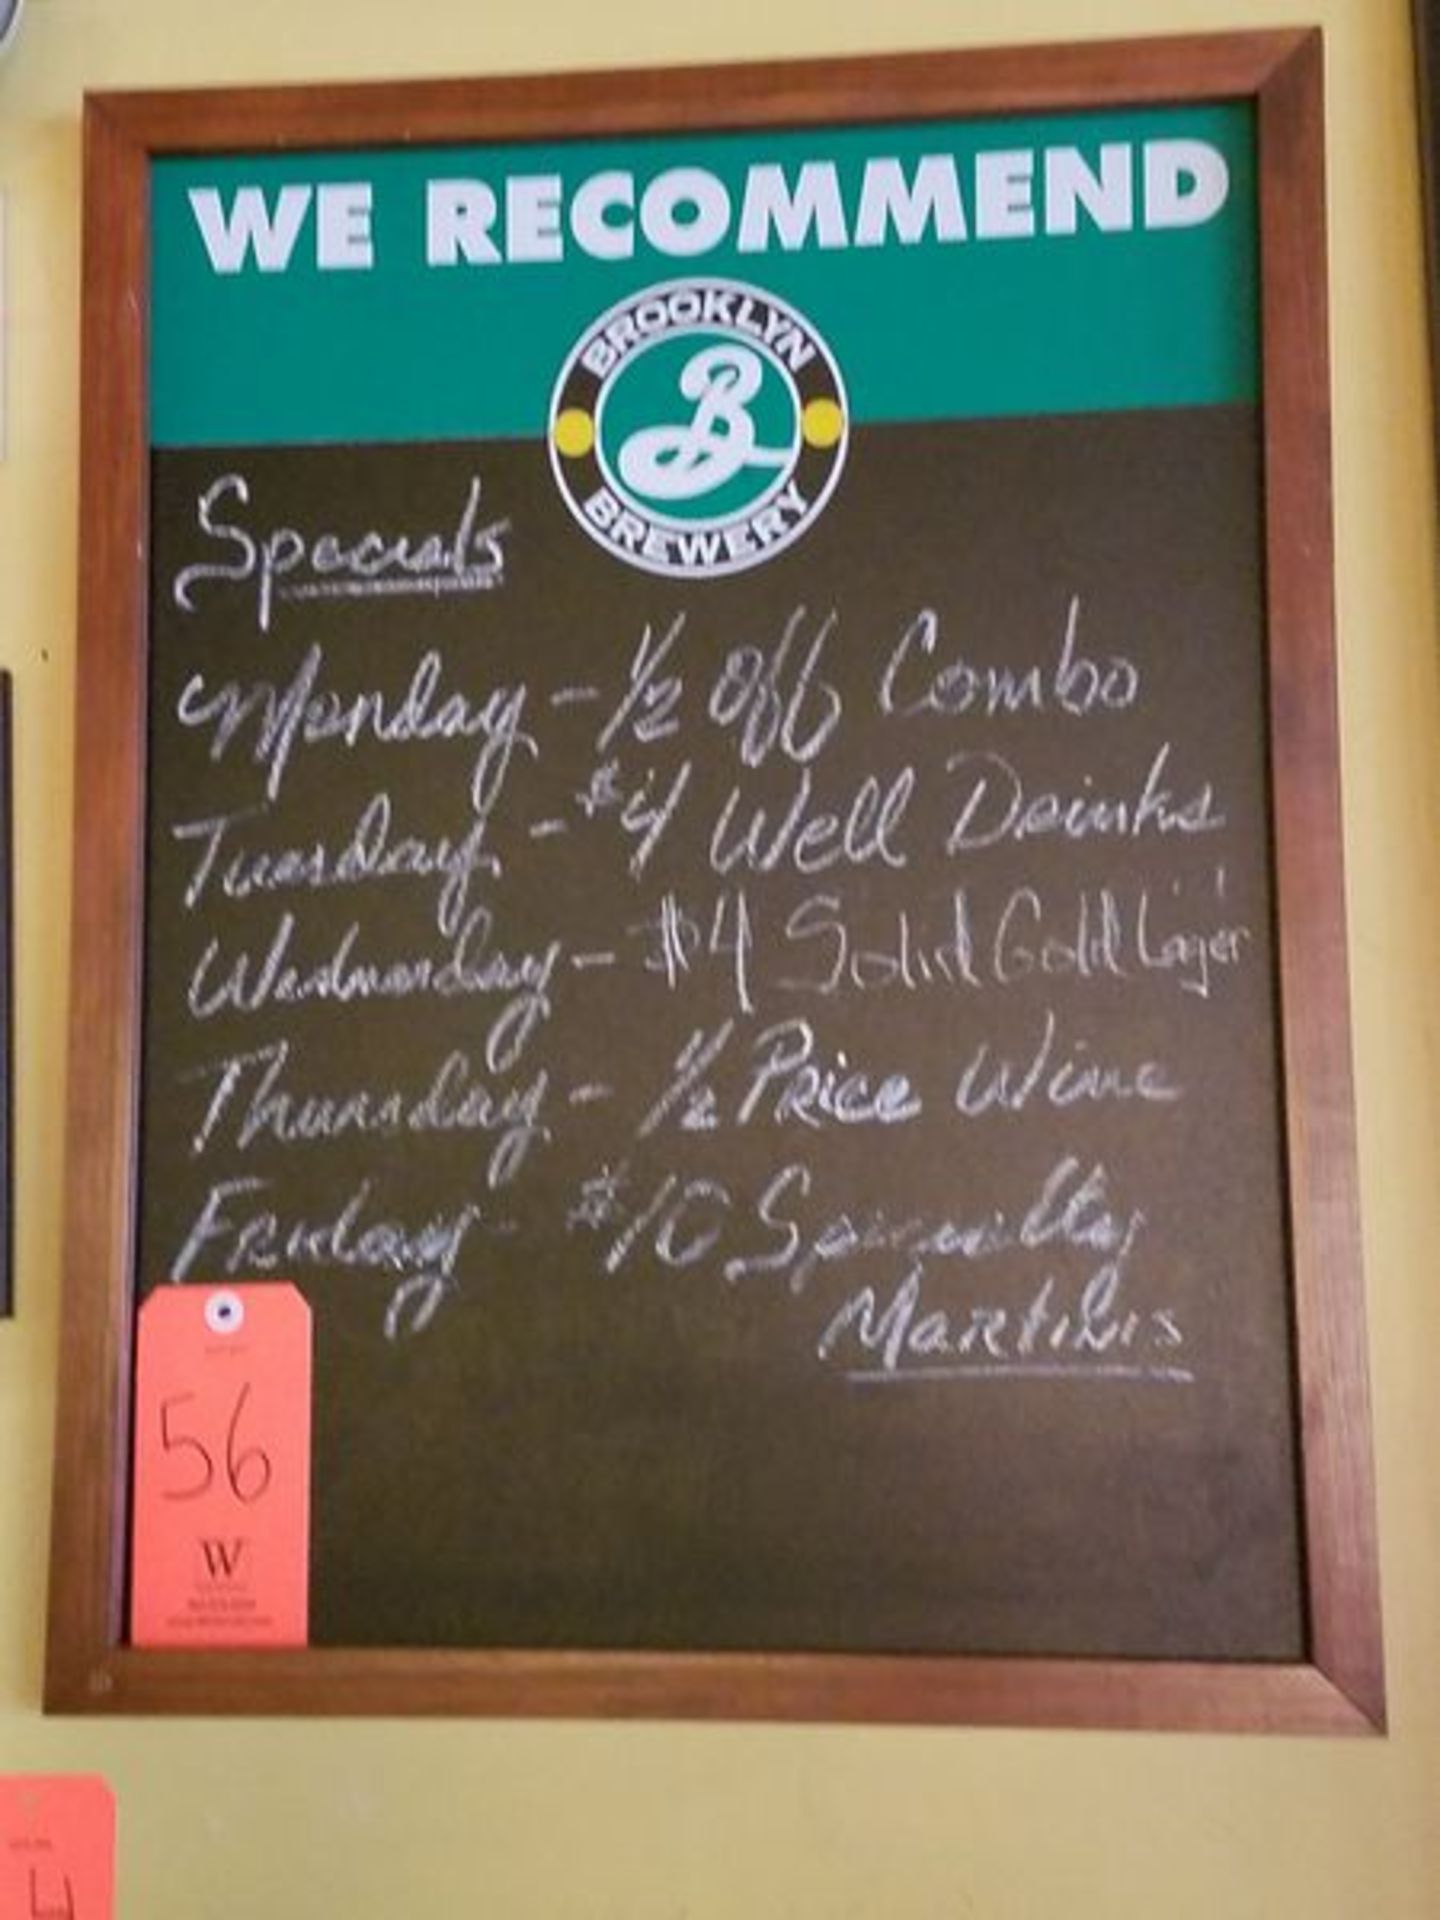 WE RECOMMEND
BROOKLYN
B
BREWERY
Specials
Monday - 1/2 Off Combo
Tuesday - $4 Well Drinks
Wednesday - $4 Solid Gold Lager
Thursday - 1/2 Price Wine
Friday - $10 Specialty
Martinis
56
W
4